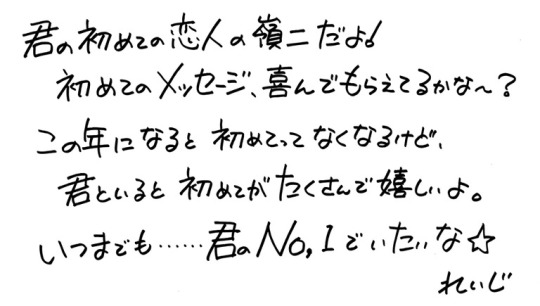 君の初めての恋人の嶺二だよ!
初めてのメッセージ、喜んでもらえてるかな〜?
この年になると初めてってなくなるけど、
君といると初めてがたくさんで嬉しいよ。
いつまでも……君のNo,1でいたいな☆
れいじ